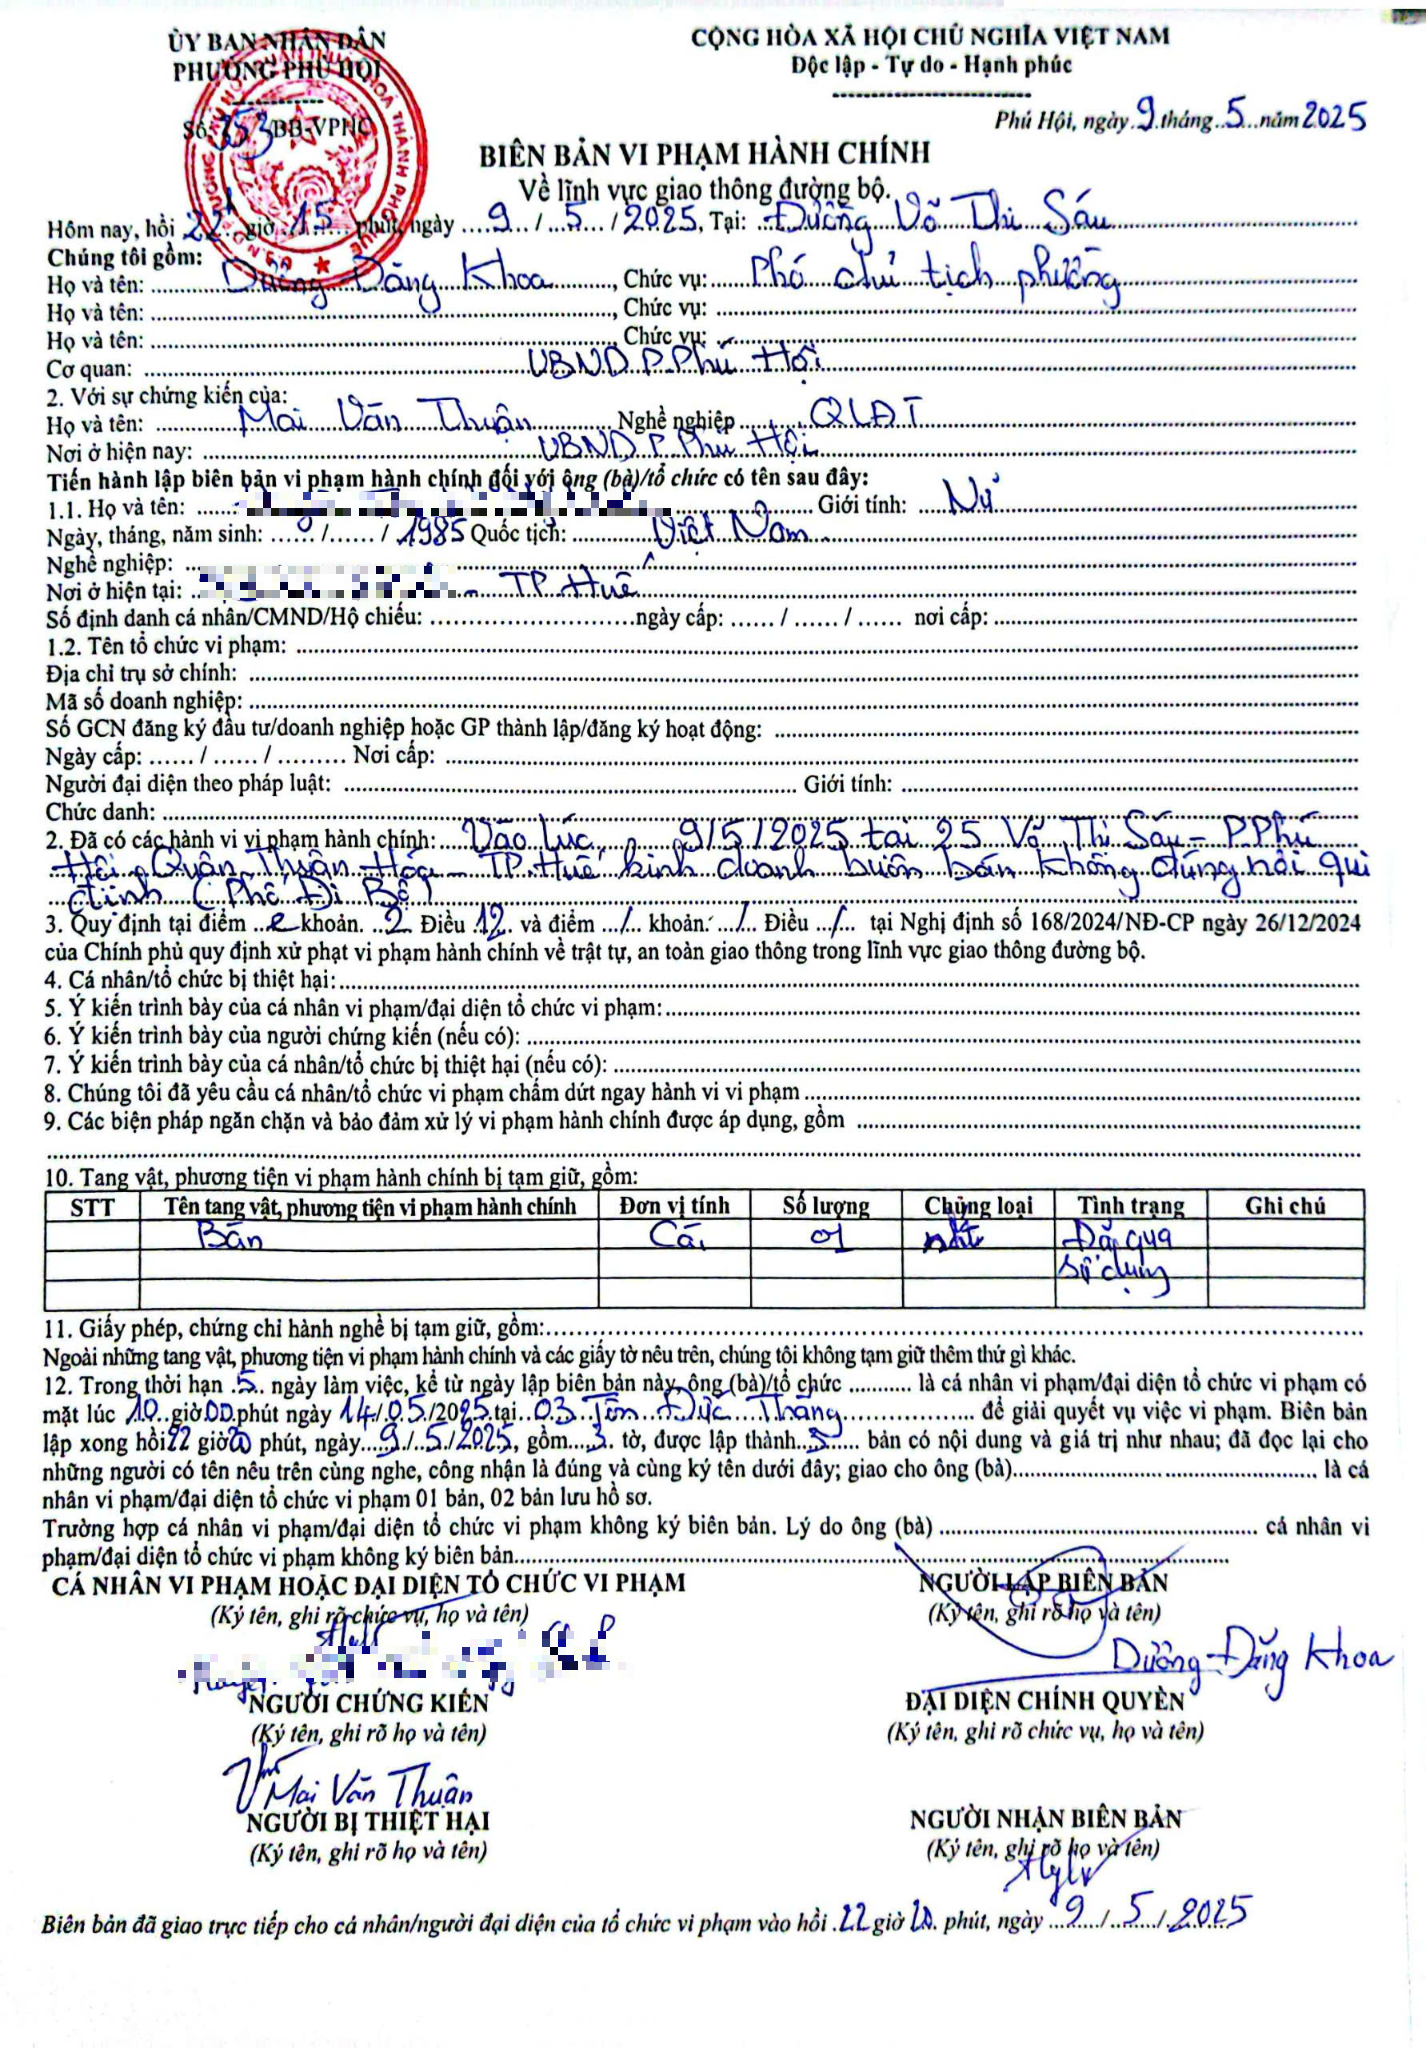 ỦY BAN NHÂN DÂN
PHƯỜNG PHÚ HỘI
CỘNG HÒA XÃ HỘI CHỦ NGHĨA VIỆT NAM
Độc lập - Tự do - Hạnh phúc
Số: 253/BB-VPHC
Phú Hội, ngày 9 tháng 5 năm 2025
BIÊN BẢN VI PHẠM HÀNH CHÍNH
Về lĩnh vực giao thông đường bộ.
Hôm nay, hồi 22 giờ 15 phút, ngày 9 / 5 / 2025, Tại: Đường Võ Thị Sáu
Chúng tôi gồm:
Họ và tên: Dương Đăng Khoa, Chức vụ: Phó chủ tịch phường
Họ và tên: ........, Chức vụ: ........
Họ và tên: ........, Chức vụ: ........
Cơ quan: UBND P. Phú Hội
2. Với sự chứng kiến của:
Họ và tên: Mai Văn Thuận Nghề nghiệp QLĐT
Nơi ở hiện nay: UBND P. Phú Hội
Tiến hành lập biên bản vi phạm hành chính đối với ông (bà)/tổ chức có tên sau đây:
1.1. Họ và tên: ........ Giới tính: Nữ
Ngày, tháng, năm sinh: ...... /...... / 1985 Quốc tịch: Việt Nam
Nghề nghiệp: ........
Nơi ở hiện tại: ........ TP. Huế
Số định danh cá nhân/CMND/Hộ chiếu: ........ ngày cấp: ...... / ...... / ...... nơi cấp: ........
1.2. Tên tổ chức vi phạm: ........
Địa chỉ trụ sở chính: ........
Mã số doanh nghiệp: ........
Số GCN đăng ký đầu tư/doanh nghiệp hoặc GP thành lập/đăng ký hoạt động: ........
Ngày cấp: ...... / ...... / ......... Nơi cấp: ........
Người đại diện theo pháp luật: ........ Giới tính: ........
Chức danh: ........
2. Đã có các hành vi vi phạm hành chính: Vào lúc 9/5/2025 tại 25 Võ Thị Sáu - P.Phú
Hội - Quận Thuận Hóa - TP.Huế kinh doanh buôn bán không đúng nơi qui
định (Phố Đi Bộ)
3. Quy định tại điểm e khoản 2 Điều 12 và điểm / khoản / Điều / tại Nghị định số 168/2024/NĐ-CP ngày 26/12/2024
của Chính phủ quy định xử phạt vi phạm hành chính về trật tự, an toàn giao thông trong lĩnh vực giao thông đường bộ.
4. Cá nhân/tổ chức bị thiệt hại: ........
5. Ý kiến trình bày của cá nhân vi phạm/đại diện tổ chức vi phạm: ........
6. Ý kiến trình bày của người chứng kiến (nếu có): ........
7. Ý kiến trình bày của cá nhân/tổ chức bị thiệt hại (nếu có): ........
8. Chúng tôi đã yêu cầu cá nhân/tổ chức vi phạm chấm dứt ngay hành vi vi phạm ........
9. Các biện pháp ngăn chặn và bảo đảm xử lý vi phạm hành chính được áp dụng, gồm ........
10. Tang vật, phương tiện vi phạm hành chính bị tạm giữ, gồm:
STT Tên tang vật, phương tiện vi phạm hành chính Đơn vị tính Số lượng Chủng loại Tình trạng Ghi chú
Bàn Cái 01 Đã qua
sử dụng
11. Giấy phép, chứng chỉ hành nghề bị tạm giữ, gồm: ........
Ngoài những tang vật, phương tiện vi phạm hành chính và các giấy tờ nêu trên, chúng tôi không tạm giữ thêm thứ gì khác.
12. Trong thời hạn 5 ngày làm việc, kể từ ngày lập biên bản này, ông (bà)/tổ chức ........... là cá nhân vi phạm/đại diện tổ chức vi phạm có
mặt lúc 10 giờ 00 phút ngày 14/05/2025 tại 03 Tôn Đức Thắng ........ để giải quyết vụ việc vi phạm. Biên bản
lập xong hồi 22 giờ 20 phút, ngày 9/5/2025, gồm 3 tờ, được lập thành 3 bản có nội dung và giá trị như nhau; đã đọc lại cho
những người có tên nêu trên cùng nghe, công nhận là đúng và cùng ký tên dưới đây; giao cho ông (bà)........ là cá
nhân vi phạm/đại diện tổ chức vi phạm 01 bản, 02 bản lưu hồ sơ.
Trường hợp cá nhân vi phạm/đại diện tổ chức vi phạm không ký biên bản. Lý do ông (bà) ........ cá nhân vi
phạm/đại diện tổ chức vi phạm không ký biên bản........
CÁ NHÂN VI PHẠM HOẶC ĐẠI DIỆN TỔ CHỨC VI PHẠM
(Ký tên, ghi rõ chức vụ, họ và tên)
NGƯỜI LẬP BIÊN BẢN
(Ký tên, ghi rõ họ và tên)
Dương Đăng Khoa
NGƯỜI CHỨNG KIẾN
(Ký tên, ghi rõ họ và tên)
Mai Văn Thuận
ĐẠI DIỆN CHÍNH QUYỀN
(Ký tên, ghi rõ chức vụ, họ và tên)
NGƯỜI BỊ THIỆT HẠI
(Ký tên, ghi rõ họ và tên)
NGƯỜI NHẬN BIÊN BẢN
(Ký tên, ghi rõ họ và tên)
Biên bản đã giao trực tiếp cho cá nhân/người đại diện của tổ chức vi phạm vào hồi 22 giờ 20 phút, ngày 9/5/2025